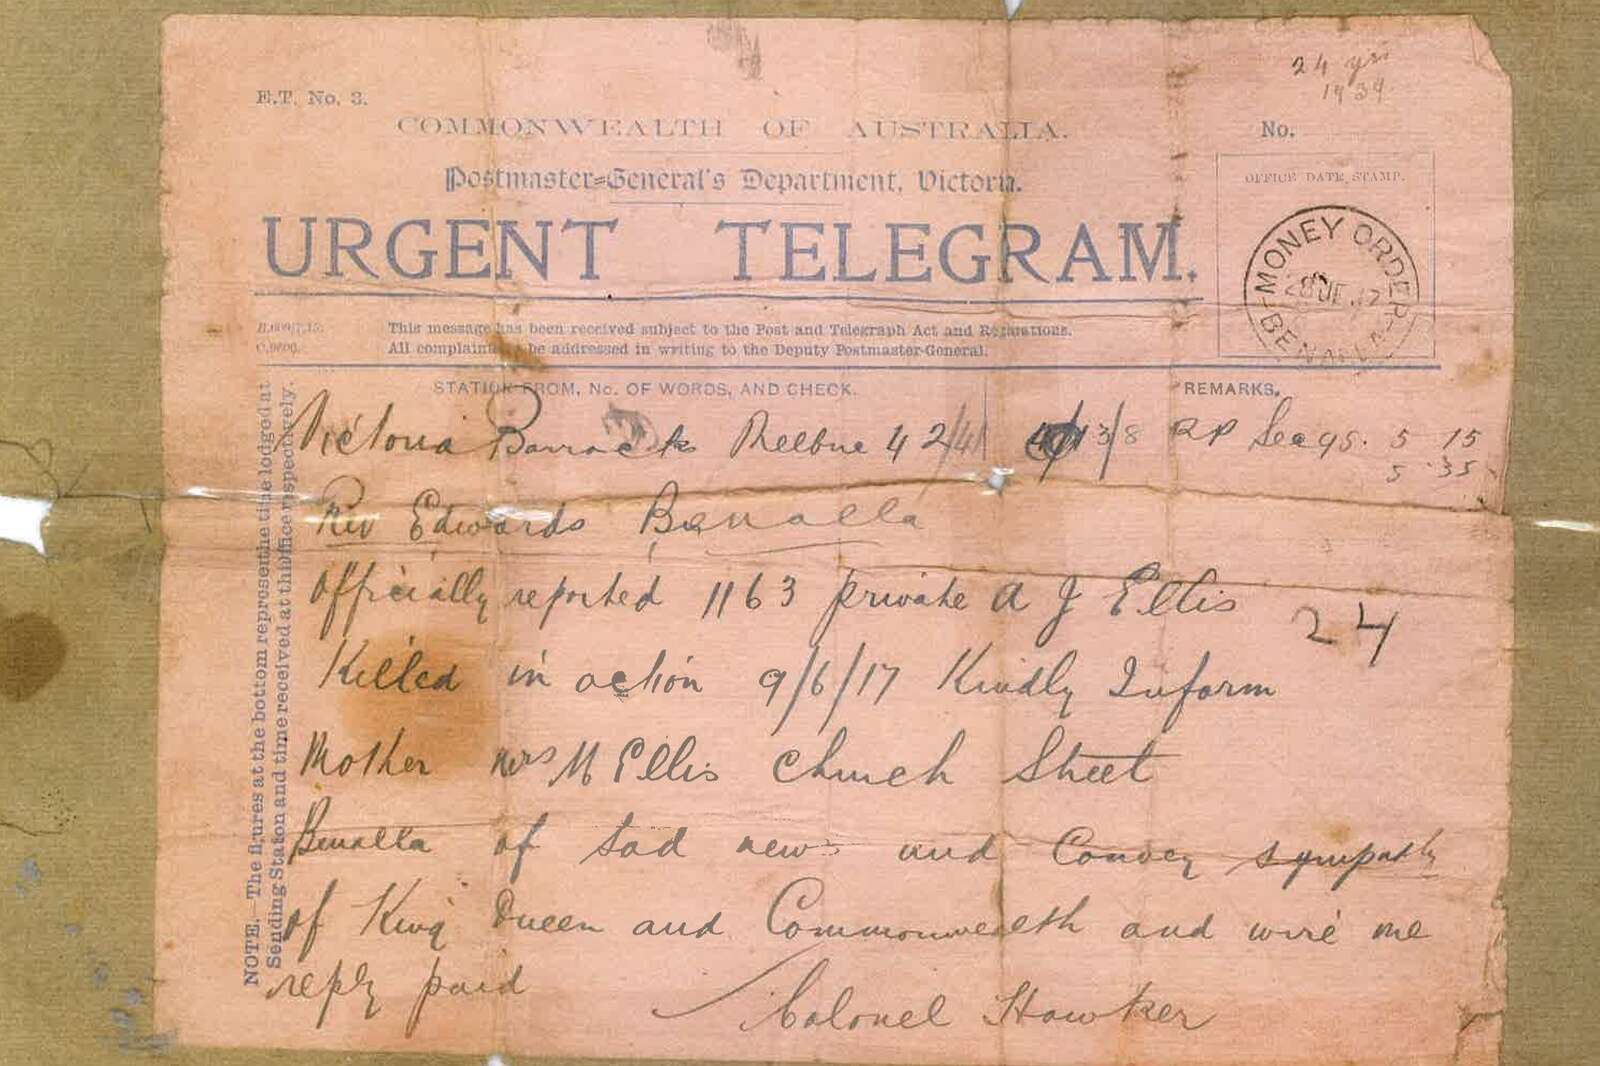 24 yrs
1934
E.T. No. 3.
COMMONWEALTH OF AUSTRALIA.
No.
Postmaster-General's Department, Victoria.
OFFICE DATE STAMP.
URGENT TELEGRAM.
MONEY ORDER
BENALLA
This message has been received subject to the Post and Telegraph Act and Regulations.
All complaints be addressed in writing to the Deputy Postmaster-General.
STATION FROM, No. OF WORDS, AND CHECK.
REMARKS.
Victoria Barracks Melbne 42/41 13/8 RP 5 15
5 35
Rev Edwards Benalla
Officially reported 1163 private A J Ellis
24
Killed in action 9/6/17 Kindly Inform
Mother mrs M Ellis Church Street
Benalla of sad news and Convey sympathy
of King Queen and Commonwealth and wire me
reply paid
Colonel Hawker
NOTE.—The figures at the bottom represent the time lodged at
Sending Station and time received at this office respectively.